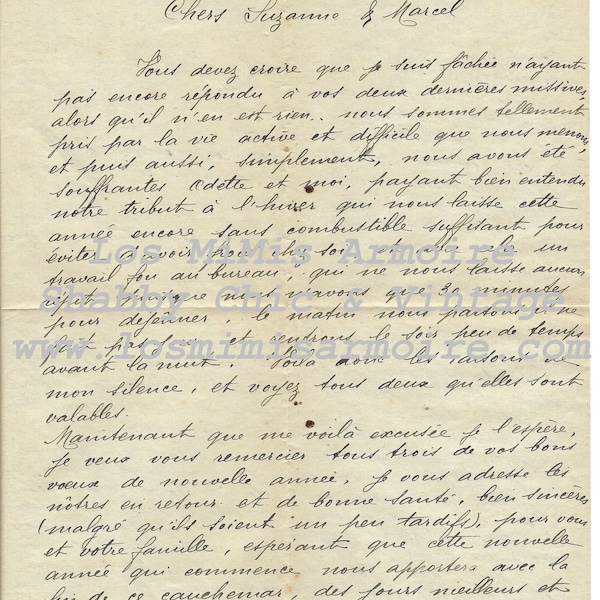 Chers Suzanne & Marcel
Vous devez croire que je suis fâchée n'ayant
pas encore répondu à vos deux dernières missives,
alors qu'il n'en est rien.. nous sommes tellement
pris par la vie active et difficile que nous menons,
et puis aussi, simplement, nous avons été
souffrantes Odette et moi, payant bien entendu
notre tribut à l'hiver qui nous laisse cette
année encore sans combustible suffisant pour
éviter d'avoir froid chez soi et puis un
Los MiMis Armoire
travail fou au bureau, qui ne nous laisse aucun
Shabby Chic & Vintage
répit puisque nous n'avons que 30 minutes
pour déjeuner, le matin nous partons il ne
www.losmimisarmoire.com
fait pas jour, et rentrons le soir peu de temps
avant la nuit. Voilà donc les raisons de
mon silence, et voyez tous deux qu'elles sont
valables.
Maintenant que me voilà excusée je l'espère,
je veux vous remercier tous trois de vos bons
vœux de nouvelle année, je vous adresse les
nôtres en retour et de bonne santé, bien sincères
(malgré qu'ils soient un peu tardifs), pour vous
et votre famille, espérant que cette nouvelle
année qui commence nous apportera avec la
fin de ce cauchemar, des jours meilleurs et